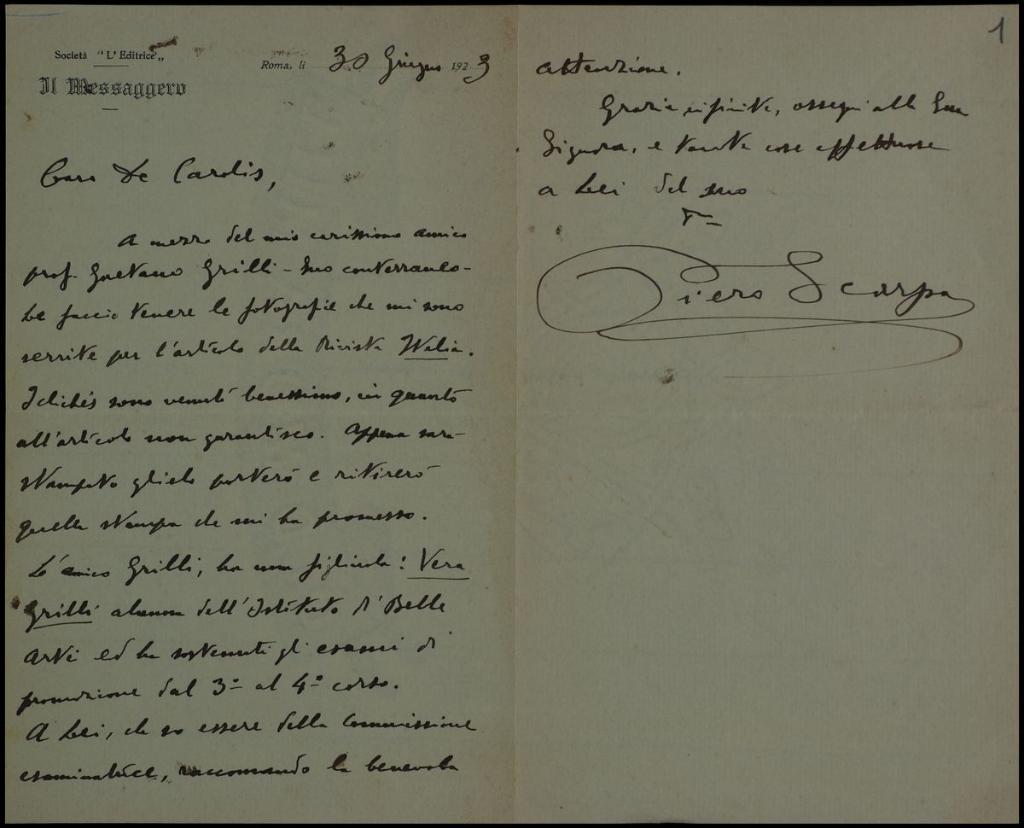 Società "L'Editrice"
Il Messaggero
Roma, li 30 Giugno 1923
Caro De Carolis,
A mezzo del mio carissimo amico
prof. Gaetano Grilli - Suo conterraneo -
Le faccio tenere le fotografie che mi sono
servite per l'articolo della Rivista Italia.
I clichés sono venuti benissimo, in quanto
all'articolo non garantisco. Appena sarà
stampato glielo porterò e ritirerò
quella stampa che mi ha promesso.
L'amico Grilli, ha una figliuola: Vera
Grilli alunna dell'Istituto di Belle
Arti ed ha sostenuti gli esami di
promozione dal 3º al 4º corso.
A Lei, che so essere della Commissione
esaminatrice, raccomando la benevola
1
attenzione.
Grazie infinite, ossequi alla Sua
Signora, e tante cose affettuose
a Lei dal suo
Piero Scarpa